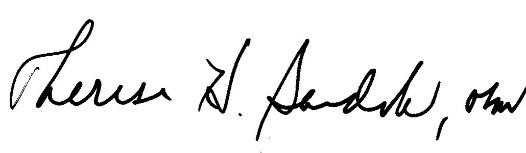 Therese H. Sandok, OSM